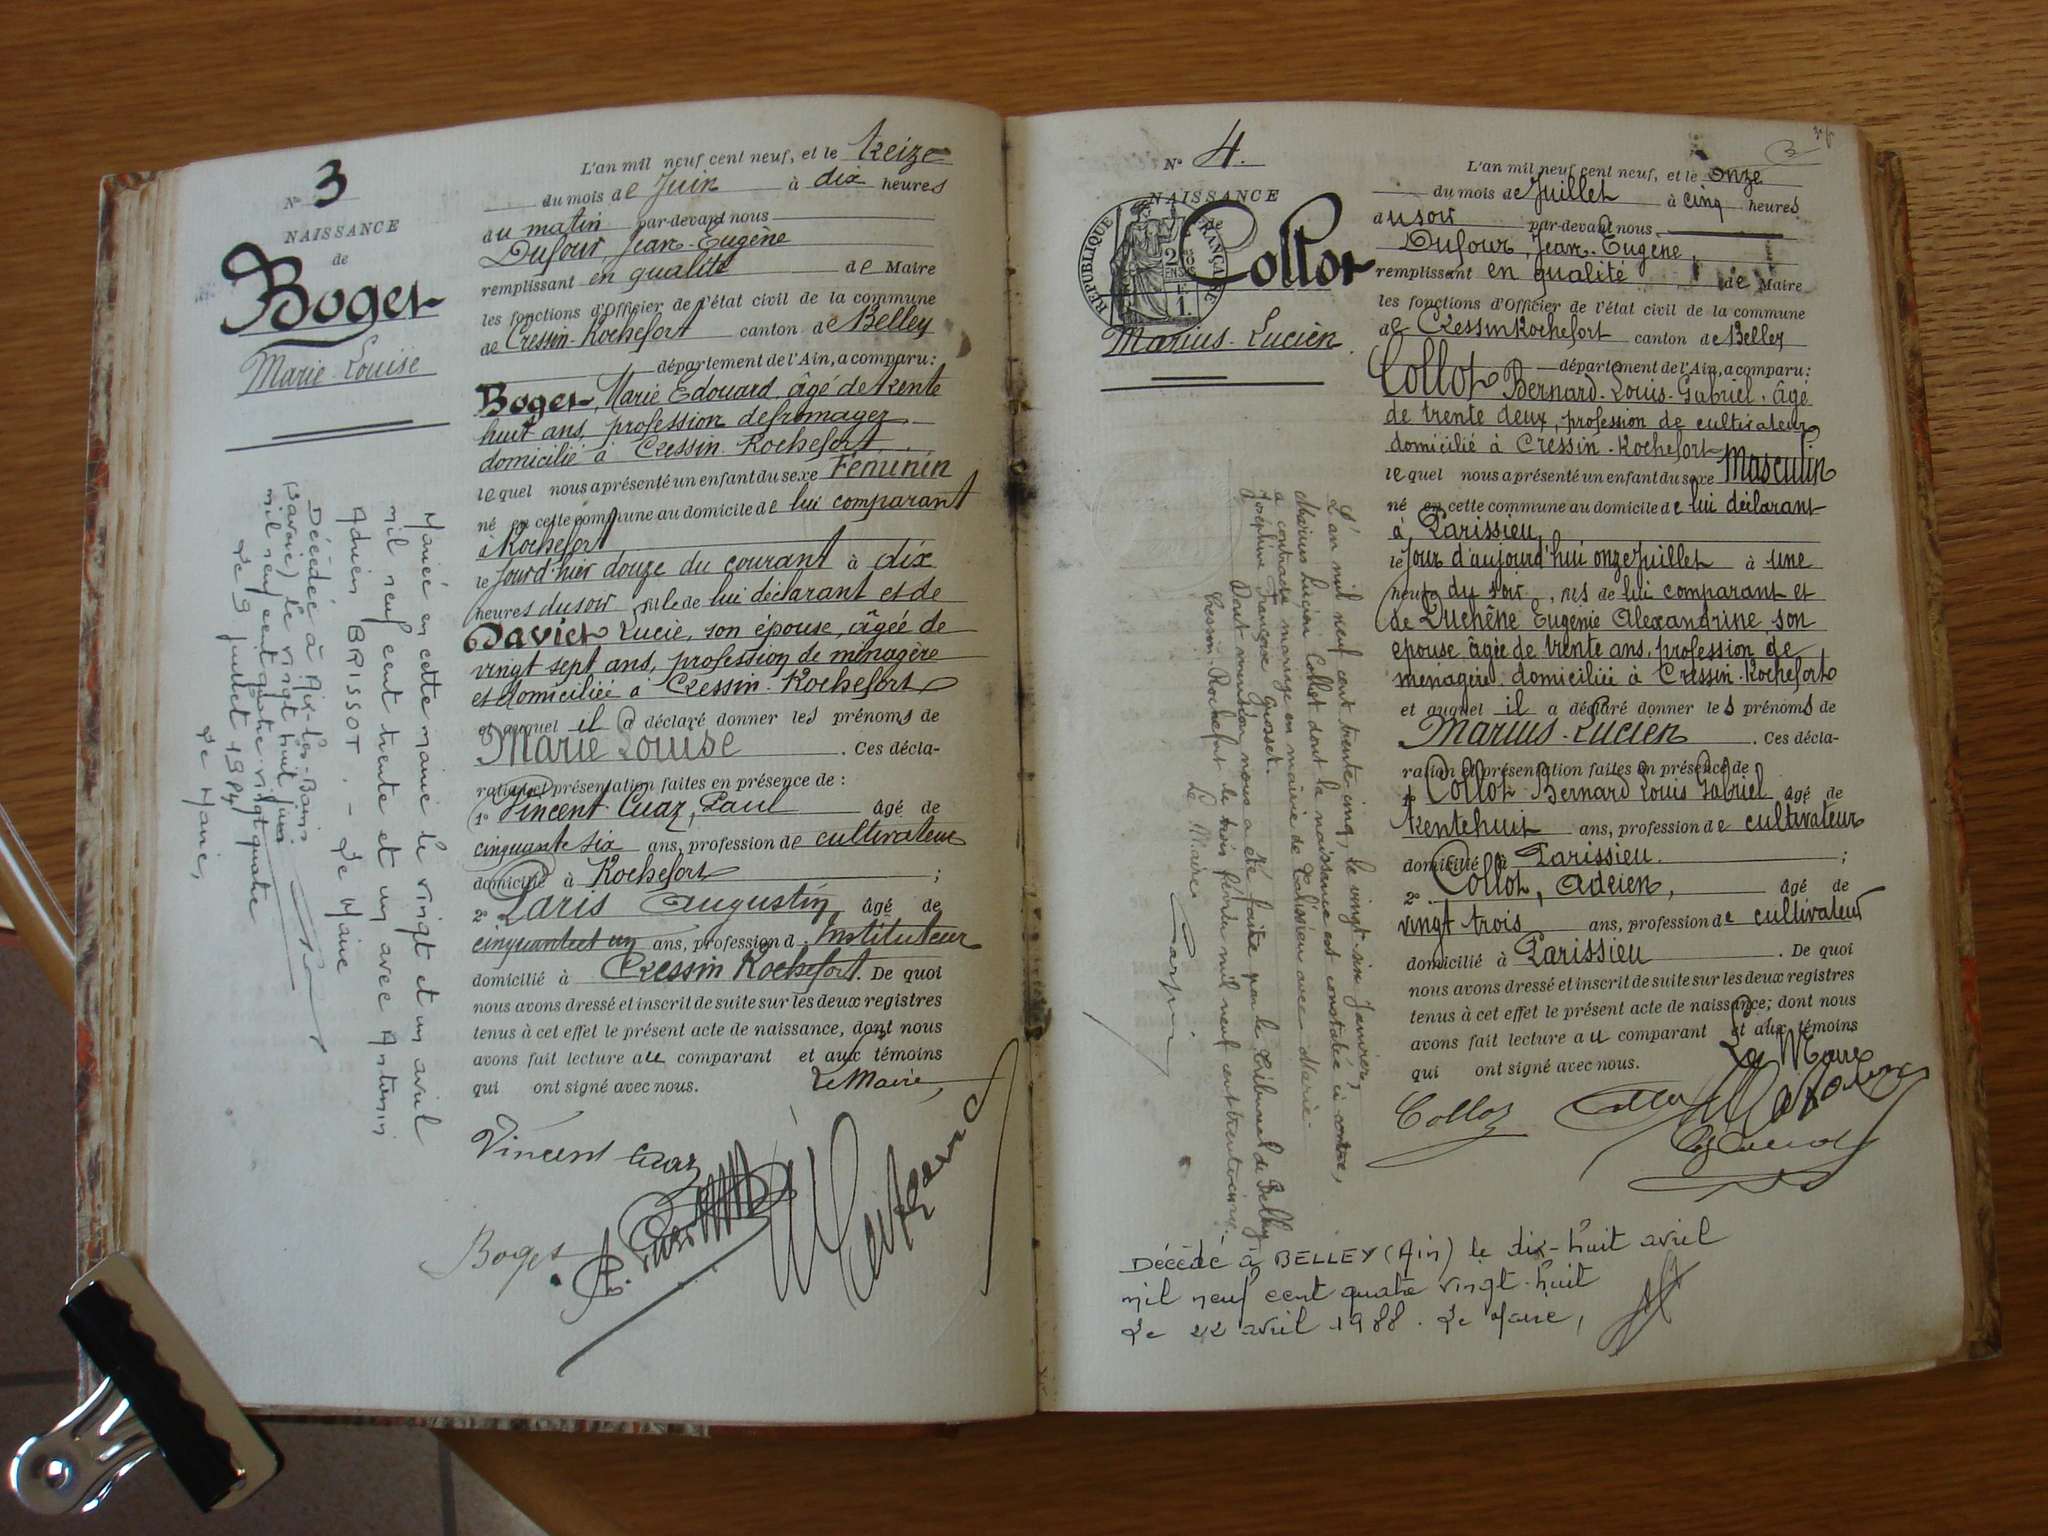 N° 3
NAISSANCE
de
Boget
Marie Louise
L'an mil neuf cent neuf, et le treize
du mois de Juin à dix heures
du matin par-devant nous
Dufour, Jean-Eugène
remplissant en qualité de Maire
les fonctions d'Officier de l'état civil de la commune
de Cressin-Rochefort canton de Belley
département de l'Ain, a comparu:
Boget, Marie Edouard, âgé de trente
huit ans, profession de fromager
domicilié à Cressin-Rochefort
lequel nous a présenté un enfant du sexe Féminin
né en cette commune au domicile de lui comparant
à Rochefort
le jour d'hier douze du courant à dix
heures du soir, fille de lui déclarant et de
Daviet Lucie, son épouse, âgée de
vingt sept ans, profession de ménagère
et domiciliée à Cressin-Rochefort
et auquel il a déclaré donner les prénoms de
Marie Louise. Ces décla-
ration et présentation faites en présence de :
1° Vincent Cuaz, Paul âgé de
cinquante six ans, profession de cultivateur
domicilié à Rochefort ;
2° Paris Augustin âgé de
cinquante et un ans, profession d'Instituteur
domicilié à Cressin Rochefort. De quoi
nous avons dressé et inscrit de suite sur les deux registres
tenus à cet effet le présent acte de naissance, dont nous
avons fait lecture au comparant et aux témoins
qui ont signé avec nous. Le Maire,
Vincent Cuaz
Boget
Mariée en cette mairie le vingt et un avril
mil neuf cent trente et un avec Antonin
Adrien BRISSOT. - Le Maire
Décédée à Aix-les-Bains
(Savoie) le vingt huit juin
mil neuf cent quatre-vingt quatre
Le 9 juillet 1984
Le Maire,
N° 4.
NAISSANCE
de
RÉPUBLIQUE FRANÇAISE
Collot
Marius-Lucien
L'an mil neuf cent neuf, et le onze
du mois de Juillet à cinq heures
du soir par-devant nous
Dufour, Jean-Eugène,
remplissant en qualité de Maire
les fonctions d'Officier de l'état civil de la commune
de Cressin Rochefort canton de Belley
département de l'Ain, a comparu:
Collot Bernard-Louis-Gabriel, âgé
de trente deux, profession de cultivateur
domicilié à Cressin-Rochefort
lequel nous a présenté un enfant du sexe Masculin
né en cette commune au domicile de lui déclarant
à Parissieu
le jour d'aujourd'hui onze Juillet à une
heure du soir, fils de lui comparant et
de Duchêne Eugénie Alexandrine, son
épouse âgée de trente ans, profession de
ménagère domiciliée à Cressin-Rochefort
et auquel il a déclaré donner les prénoms de
Marius-Lucien. Ces décla-
ration et présentation faites en présence de
1° Collot Bernard Louis Gabriel âgé de
trente huit ans, profession de cultivateur
domicilié à Parissieu ;
2° Collot, Adrien, âgé de
vingt trois ans, profession de cultivateur
domicilié à Parissieu. De quoi
nous avons dressé et inscrit de suite sur les deux registres
tenus à cet effet le présent acte de naissance; dont nous
avons fait lecture au comparant et aux témoins
qui ont signé avec nous. Le Maire
Collot
L'an mil neuf cent trente cinq, le vingt-six Janvier,
Marius Lucien Collot dont la naissance est constatée ci-contre,
a contracté mariage en mairie de Talissieu avec Marie-
Joséphine Françoise Grosset.
Dont mention nous a été faite par le Tribunal de Belley,
Cressin-Rochefort le trois février mil neuf cent trente cinq.
Le Maire
Décédé à BELLEY (Ain) le dix-huit avril
mil neuf cent quatre vingt-huit
Le 22 avril 1988. Le Maire,